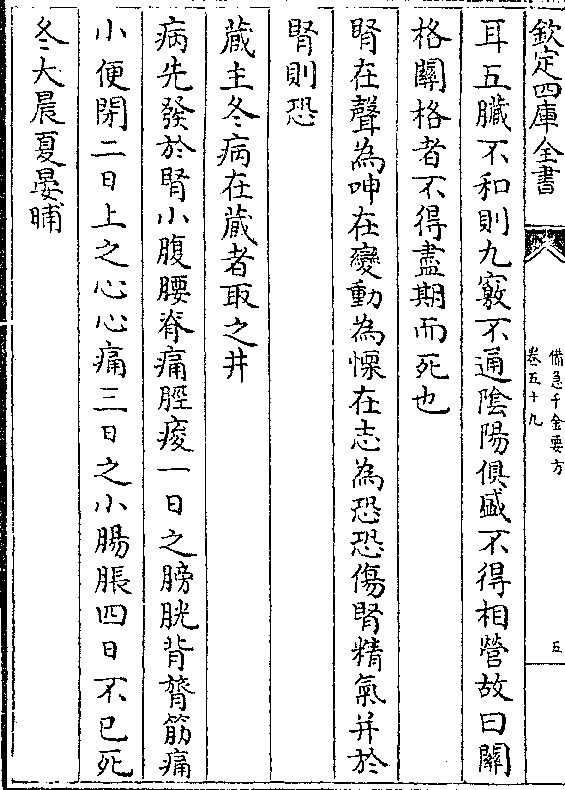 欽定四庫全書
備急千金要方
卷五十九
五
耳五臟不和則九竅不通陰陽俱盛不得相營故曰關
格關格者不得盡期而死也
腎在聲為呻在變動為慄在志為恐恐傷腎精氣并於
腎則恐
藏主冬病在藏者取之井
病先發於腎小腹腰脊痛脛痠一日之膀胱背膂筋痛
小便閉二日上之心心痛三日之小腸脹四日不已死
冬大晨夏晏晡